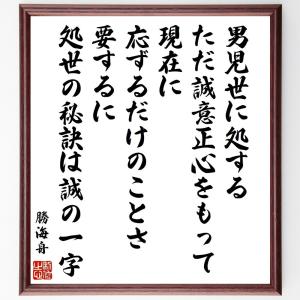 男児世に処する
ただ誠意正心をもって
現在に
応ずるだけのことさ
要するに
処世の秘訣は誠の一字
勝海舟